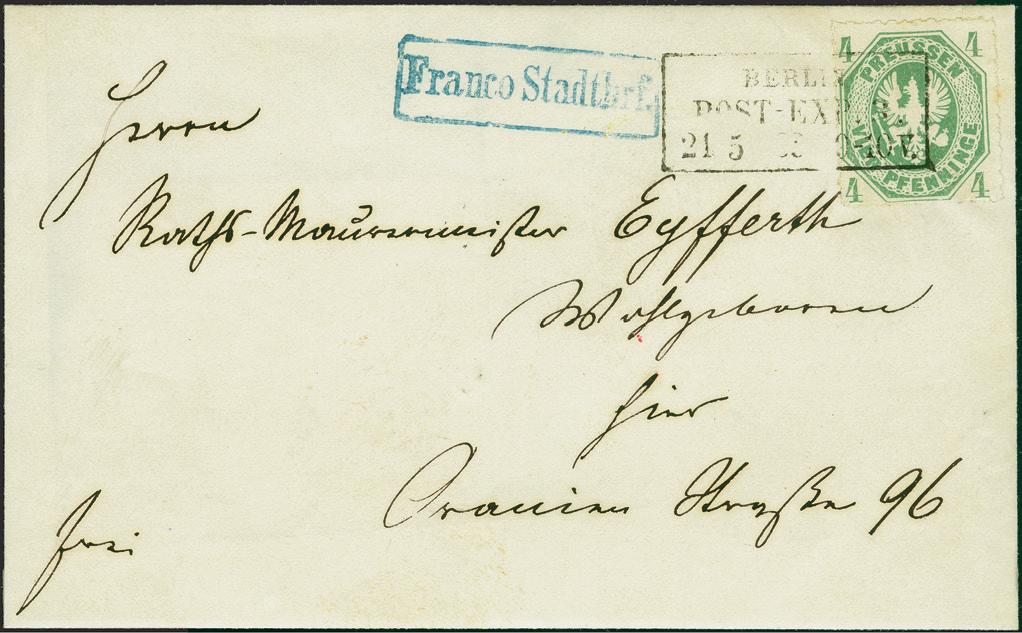 Franco Stadtbrf.
BERLIN
POST-EXP. 3.
21 5 10V.
4 4
PREUSSEN
VIER PFENNINGE
4 4
Herrn
Raths-Maurermeister Eyfferth
Wohlgeboren
hier
Oranien Straße 96
frei